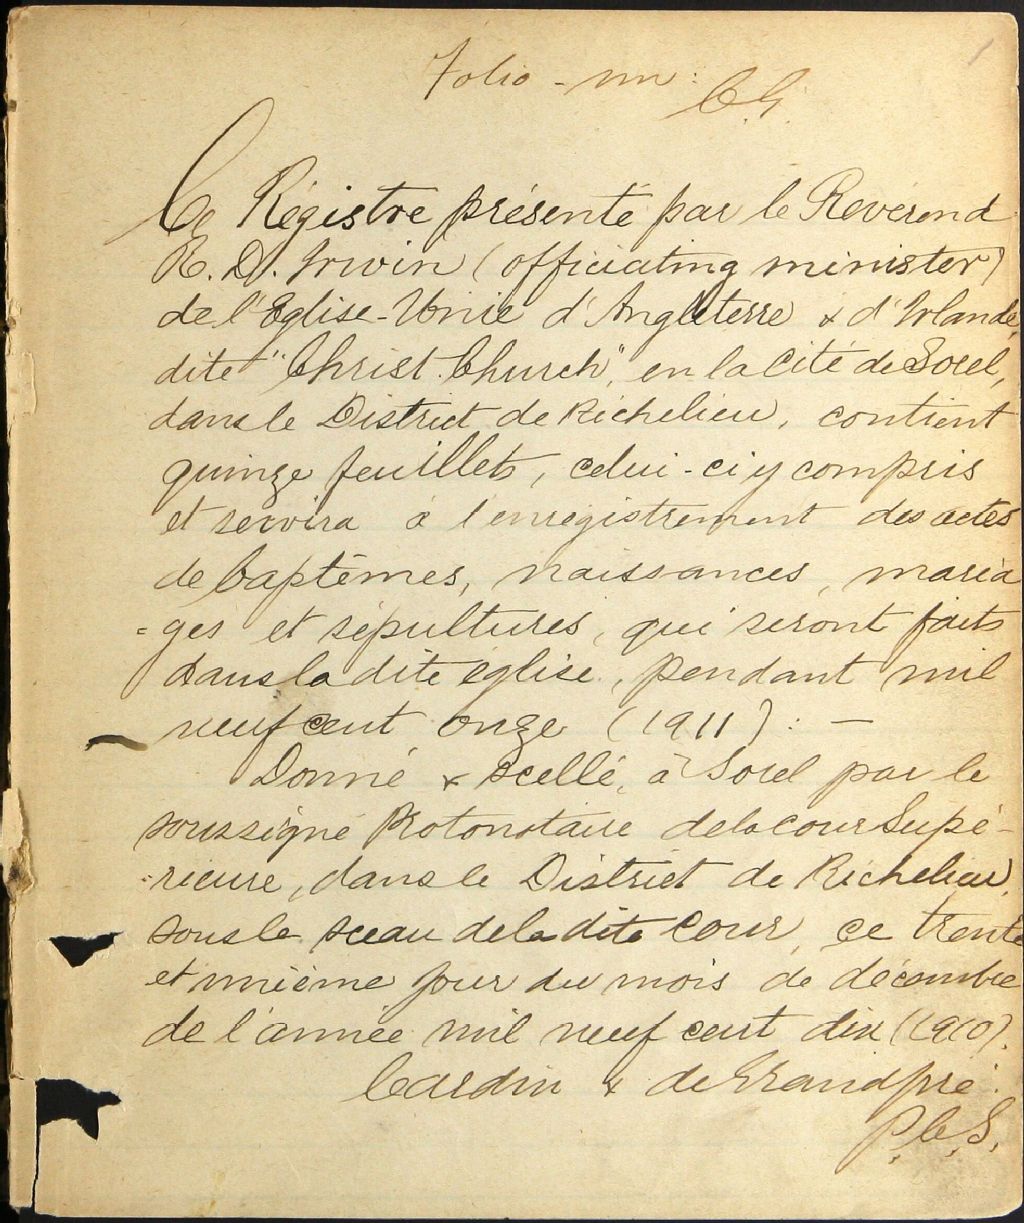 1
Folio - un :
C.G.
Ce Régistre présenté par le Révérend
R. D. Irwin (officiating minister)
de l'Eglise-Unie d'Angleterre & d'Irlande,
dite "Christ Church", en la Cité de Sorel,
dans le District de Richelieu, contient
quinze feuillets, celui-ci y compris
et servira à l'enregistrement des actes
de baptêmes, naissances, maria
=ges et sépultures, qui seront faits
dans la dite église, pendant mil
neuf cent onze (1911) : —
Donné & scellé, à Sorel par le
soussigné Protonotaire de la Cour Supé-
=rieure, dans le District de Richelieu,
sous le sceau de la dite Cour ce trente
et unième jour du mois de décembre
de l'année mil neuf cent dix (1910).
Cardin & de Grandpré.
P.C.S.